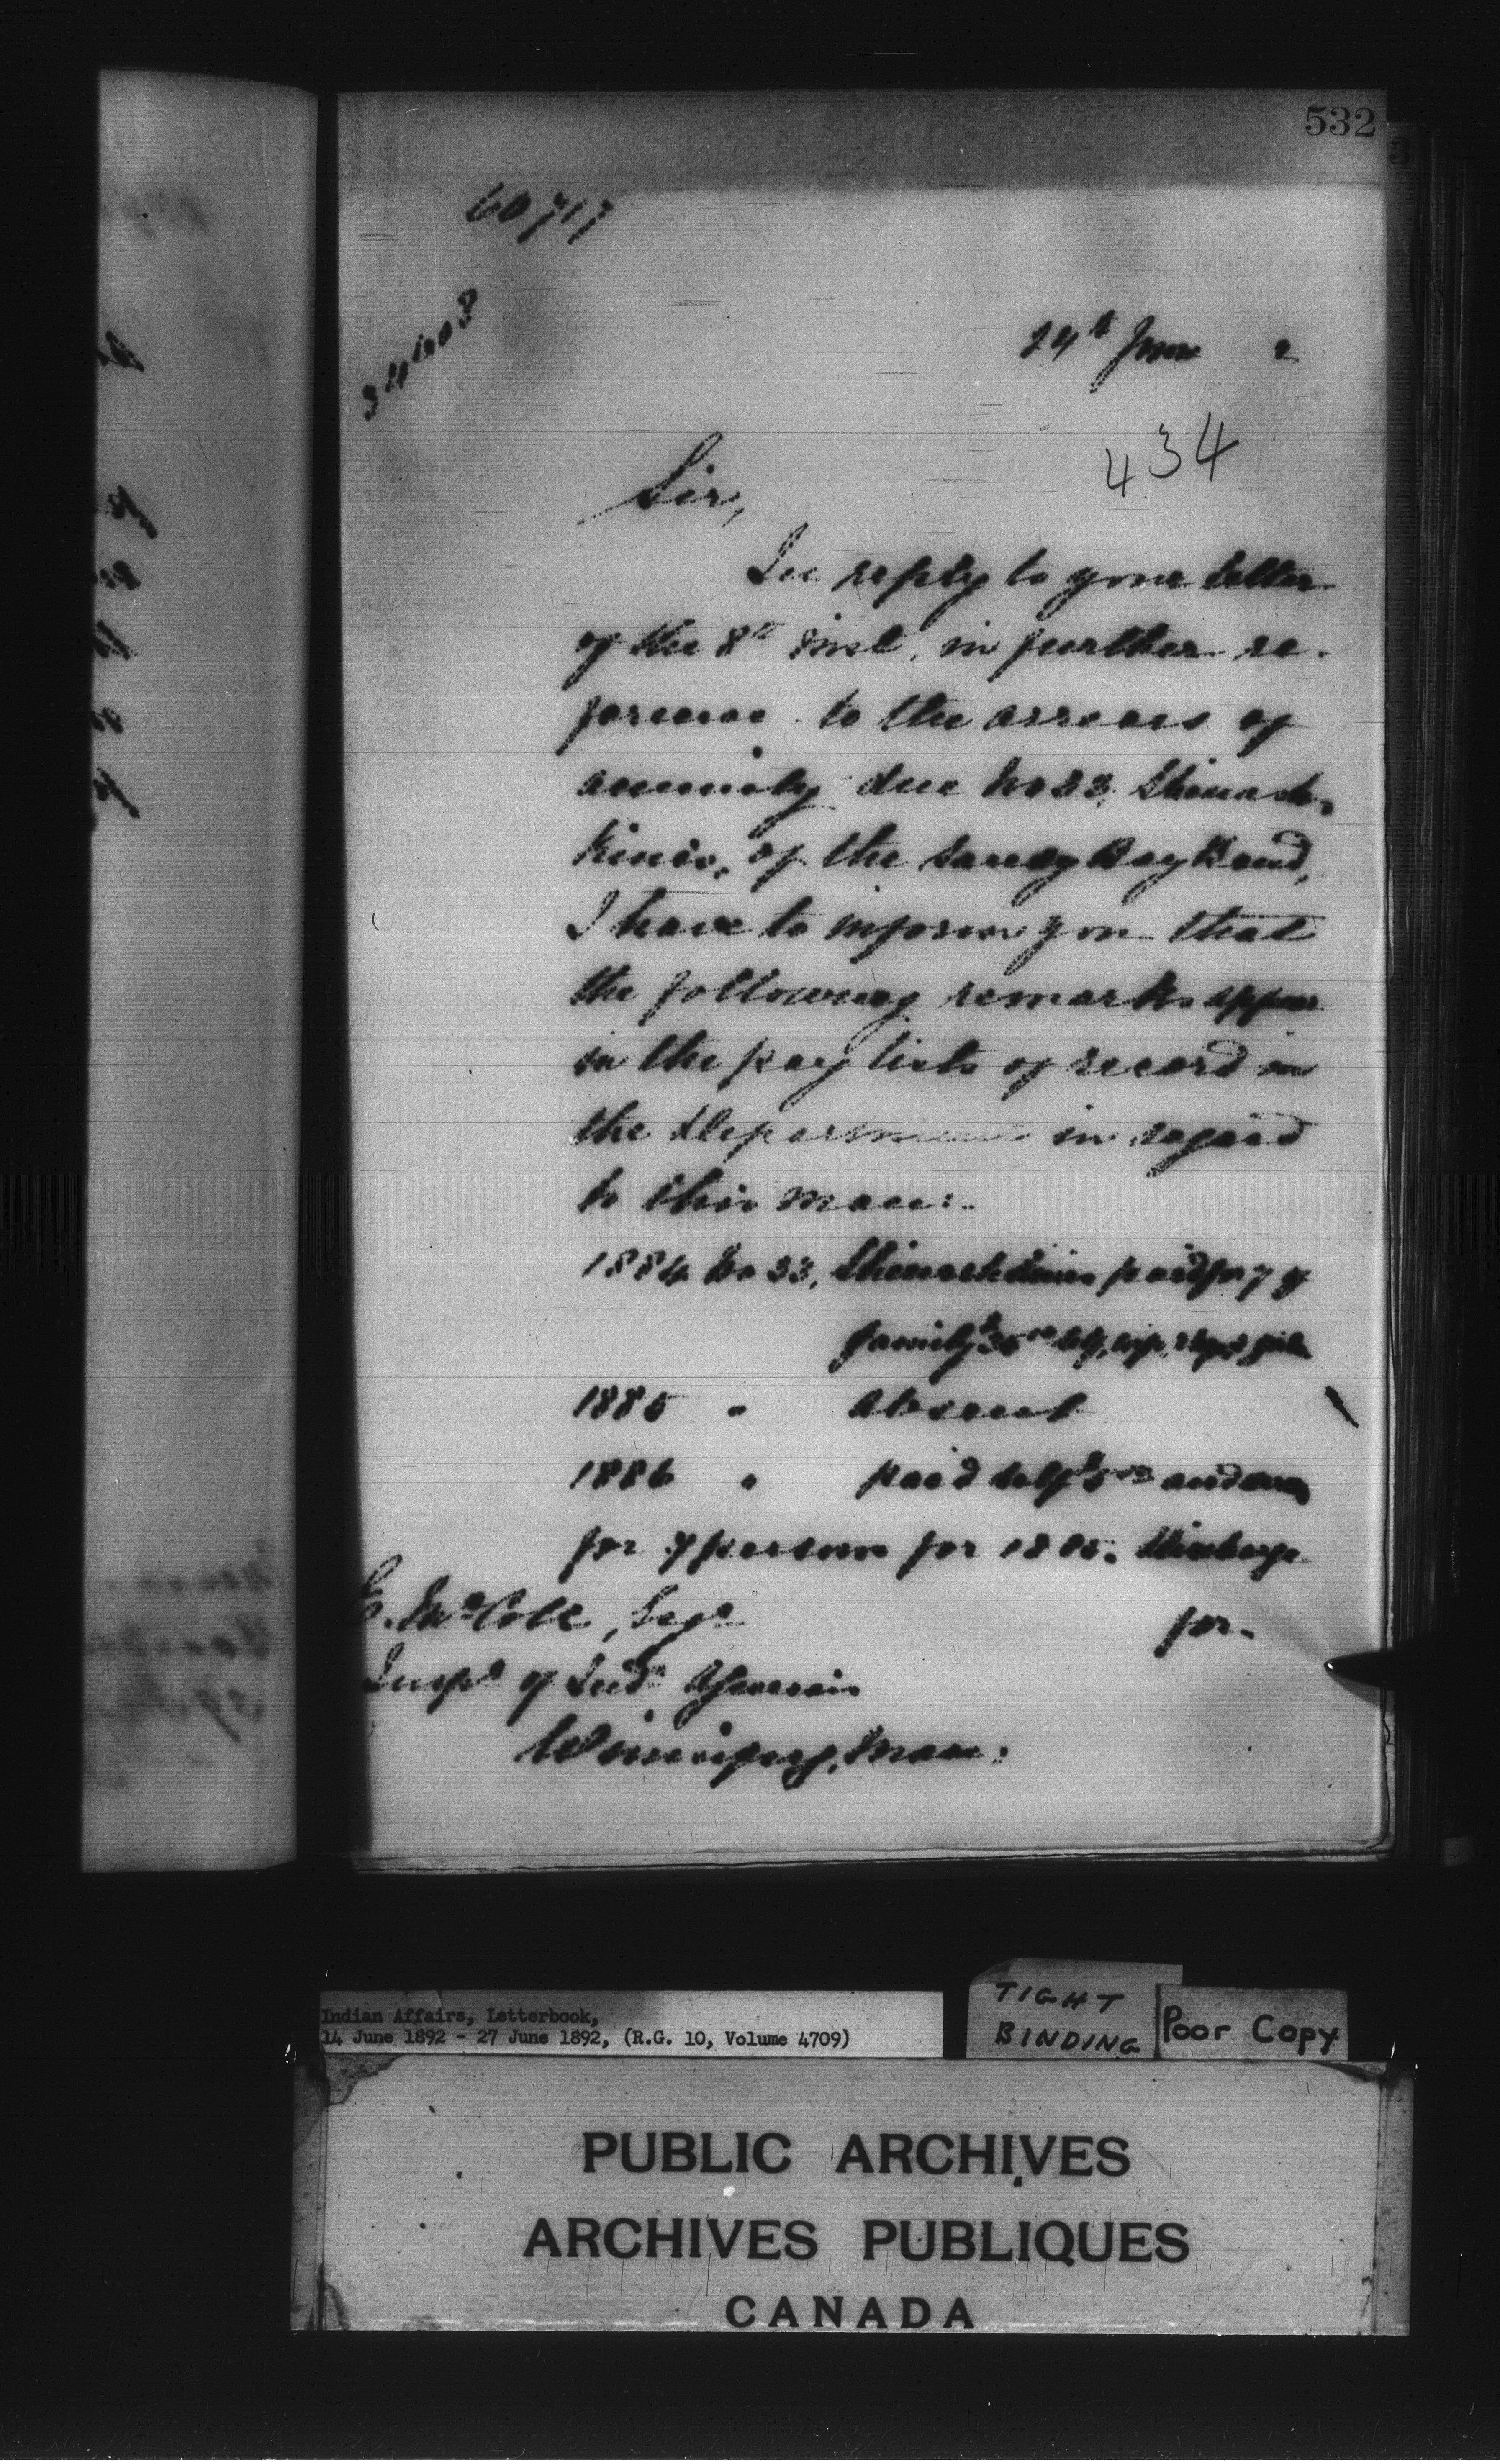 532
60717
34608
24th June 2
434
Sir,
In reply to your letter
of the 8th inst. in further re-
ference to the arrears of
annuity due No 33,
of the Sandy Bay Band,
I have to inform you that
the following remarks appear
in the pay lists of record in
the Department in regard
to this man:-
1884 No 33, paid for 7 of
family $35.00 self, wife,
1885 " absent
1886 " paid self $5.00 and
for 7 persons for 1885.
for-
E. McColl, Esqr
Inspr of Indn Agencies
Winnipeg, Man:
Indian Affairs, Letterbook,
14 June 1892 - 27 June 1892, (R.G. 10, Volume 4709)
TIGHT
BINDING
Poor Copy
PUBLIC ARCHIVES
ARCHIVES PUBLIQUES
CANADA